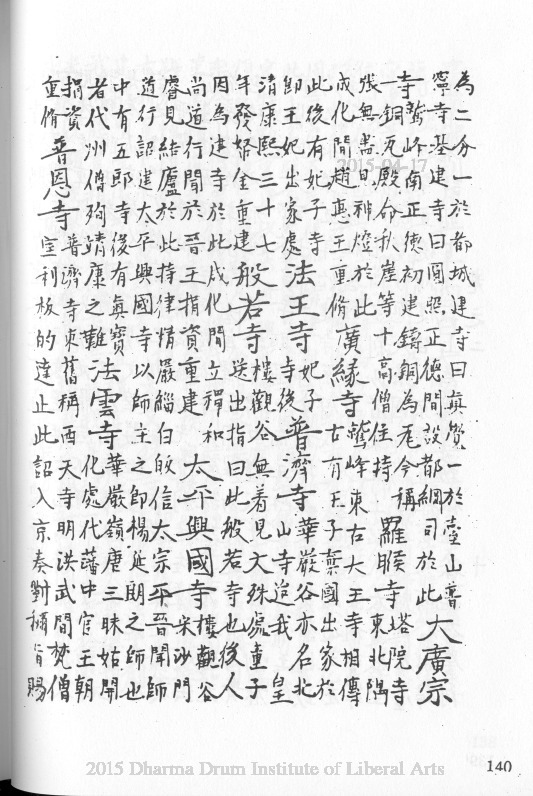 為二分一於都城建寺曰真覺一於臺山普
寧寺基建寺曰圓照正德間設都綱司於此大廣宗
寺鷲峰南正德初建鑄銅為瓦今稱
銅瓦殿命秋崖等十高僧住持羅睺寺塔院寺東北隅
張無盡見神燈於此
成化間趙惠王重修廣緣寺鷲峰東古大王寺相傳
古有王子棄國出家於
此後有妃子寺
即王妃出家處法王寺妃子寺後普濟寺華嚴谷亦名北
山寺迨我 皇
清康熙三十七
年發帑金重建般若寺樓觀谷無着見文殊處童子
送出指曰此般若寺也後人
因為建寺於此成化間立禪和
尚道行聞於晉王捐資重建太平興國寺樓觀谷
宋沙門
睿見結廬於此持律精嚴緇白皈信太宗平晉聞師
道行詔建太平興國寺以師主之即楊延朗之師也
中有五郎寺後有真寶
者代州僧殉靖康之難法雲寺華嚴嶺唐三昧姑開
化處代藩中官王朝
捐資
重脩普恩寺普濟寺東舊稱西天寺明洪武間梵僧
室利板的達止此詔入京奏對稱旨賜
140
2015-04-17
2015 Dharma Drum Institute of Liberal Arts